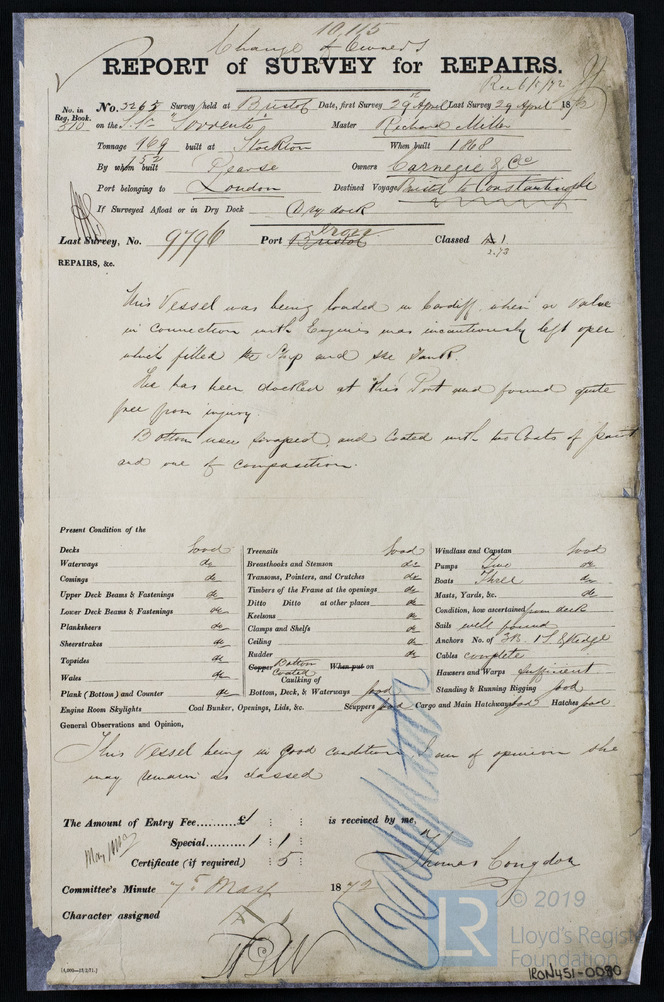 10,115
Change of Owners
REPORT of SURVEY for REPAIRS.
Rec 6/5/72
No. in Reg. Book. 510
No. 3265 Survey held at Bristol Date, first Survey 29th April Last Survey 29 April 1872
on the S.S. "Sorrento" Master Richard Miller
Tonnage 969 built at Stockton When built 1868
By whom built Pearse Owners Carnegie & Co
Port belonging to London Destined Voyage Bristol to Constantinople
If Surveyed Afloat or in Dry Dock Dry dock
Last Survey, No. 9796 Port Bristol Classed A 1
2.73
REPAIRS, &c.
This Vessel was being loaded in Cardiff, when a Valve
in connection with Engines was incautiously left open
which filled the Ship and the Tank.
She has been docked at this Port and found quite
free from injury.
Bottom now scraped, and Coated with two Coats of paint
and one of composition.
Present Condition of the
Decks Good
Waterways do
Comings do
Upper Deck Beams & Fastenings do
Lower Deck Beams & Fastenings do
Planksheers do
Sheerstrakes do
Topsides do
Wales do
Plank (Bottom) and Counter do
Engine Room Skylights
Treenails Good
Breasthooks and Stemson do
Transoms, Pointers, and Crutches do
Timbers of the Frame at the openings do
Ditto Ditto at other places do
Keelsons do
Clamps and Shelfs do
Ceiling do
Rudder do
Copper Bottom Coated When put on
Caulking of
Bottom, Deck, & Waterways good
Coal Bunker, Openings, Lids, &c. Scuppers good Cargo and Main Hatchways good Hatches good
Windlass and Capstan Good
Pumps Two do
Boats Three do
Masts, Yards, &c. do
Condition, how ascertained from deck
Sails well found
Anchors No. of 3B. 1S. & Kedge
Cables complete
Hausers and Warps Sufficient
Standing & Running Rigging good
General Observations and Opinion,
This Vessel being in good condition I am of opinion she
may remain as classed
The Amount of Entry Fee..........£1 : : is received by me,
Special..... 1 : 1 :
Certificate (if required) : 5 :
Thomas Congdon
Committee's Minute 7th May 1872
Character assigned
[4,000—21/2/71.]
LR
© 2019
Lloyd's Register
Foundation
IRON451-0080